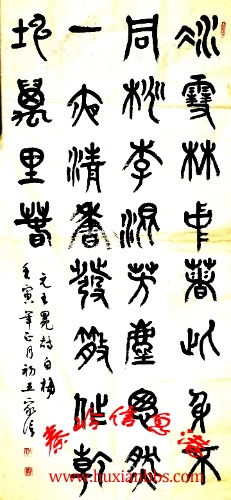 冰雪林中著此身不
同桃李混芳塵忽然
一夜清香發散作乾
坤萬里春
元王冕詩白梅
壬寅年正月初五
秦岭信息港
www.huxianbbs.com